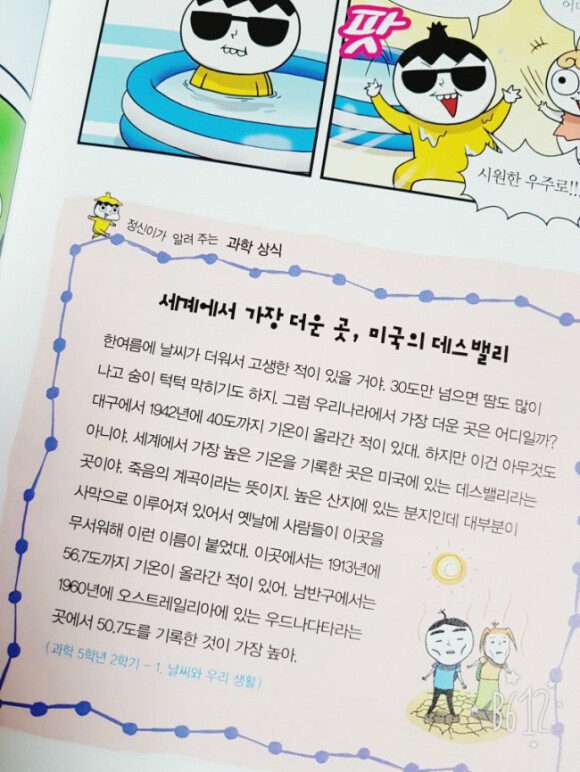 어디
팟
시원한 우주로!!!
정신이가 알려 주는 과학 상식
세계에서 가장 더운 곳, 미국의 데스밸리
한여름에 날씨가 더워서 고생한 적이 있을 거야. 30도만 넘으면 땀도 많이
나고 숨이 턱턱 막히기도 하지. 그럼 우리나라에서 가장 더운 곳은 어디일까?
대구에서 1942년에 40도까지 기온이 올라간 적이 있대. 하지만 이건 아무것도
아니야. 세계에서 가장 높은 기온을 기록한 곳은 미국에 있는 데스밸리라는
곳이야. 죽음의 계곡이라는 뜻이지. 높은 산지에 있는 분지인데 대부분이
사막으로 이루어져 있어서 옛날에 사람들이 이곳을
무서워해 이런 이름이 붙었대. 이곳에서는 1913년에
56.7도까지 기온이 올라간 적이 있어. 남반구에서는
1960년에 오스트레일리아에 있는 우드나다타라는
곳에서 50.7도를 기록한 것이 가장 높아.
(과학 5학년 2학기 – 1. 날씨와 우리 생활)
B612